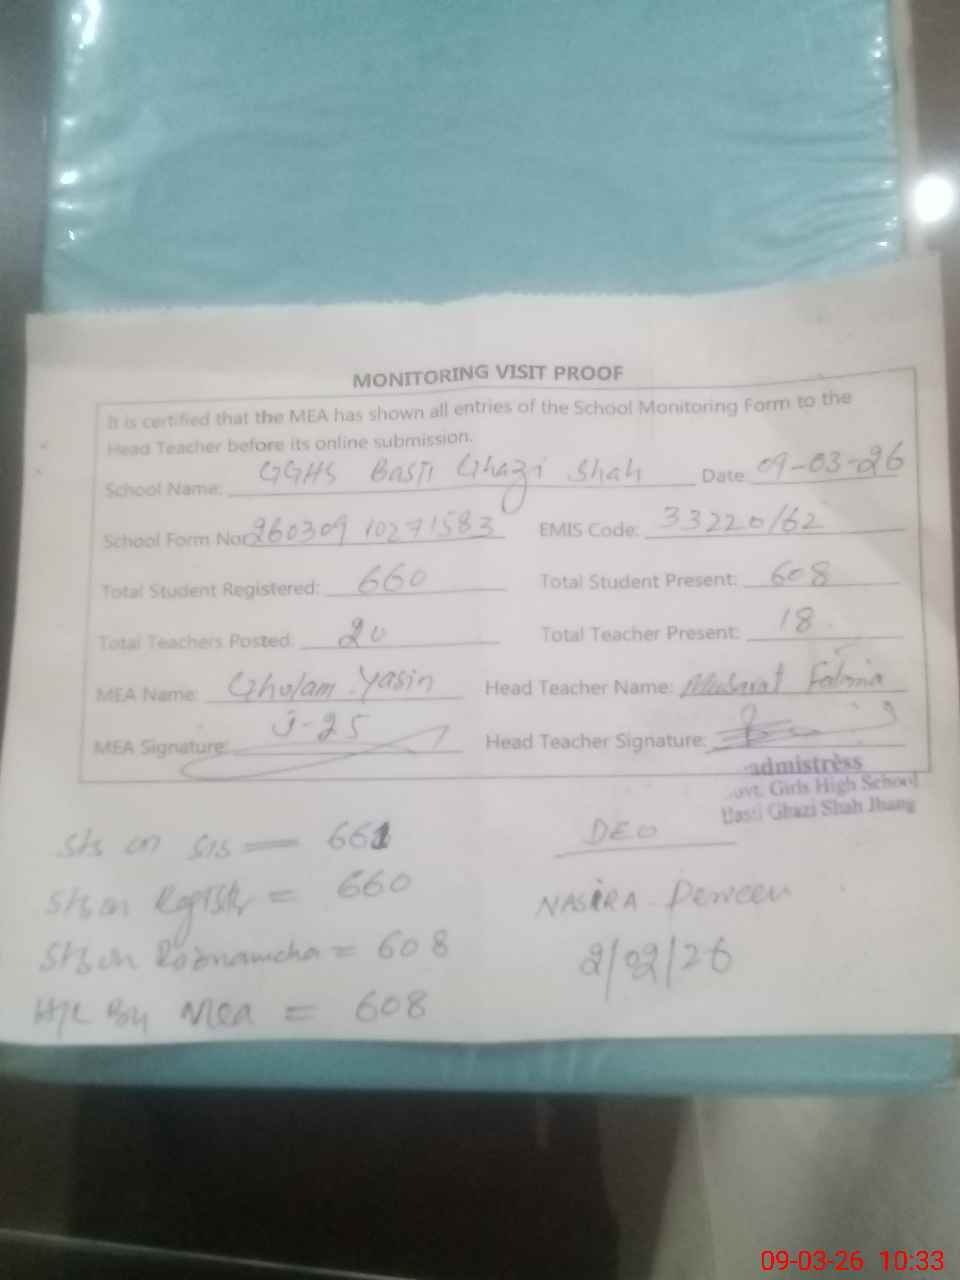 MONITORING VISIT PROOF
It is certified that the MEA has shown all entries of the School Monitoring Form to the
Head Teacher before its online submission.
School Name: GGHS Basti Ghazi Shah Date 09-03-26
School Form No: 260309 10271583 EMIS Code: 33220162
Total Student Registered: 660 Total Student Present: 608
Total Teachers Posted: 20 Total Teacher Present: 18
MEA Name: Gholam Yasin Head Teacher Name: Musarat Fatima
MEA Signature: J-25 Head Teacher Signature:
admistress
ovt. Girls High School
Basti Ghazi Shah Jhang
Sts on SIS — 661
Sts on Register = 660
Sts on Roznamcha = 608
H/C By Mea = 608
DEO
NASIRA Perveen
2/02/26
09-03-26 10:33